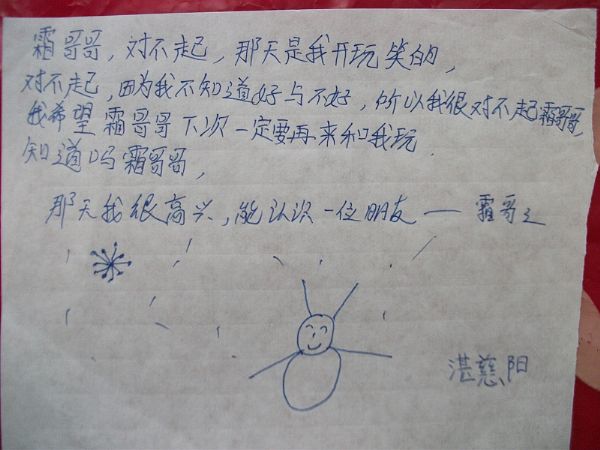 霜哥哥，对不起，那天是我开玩笑的，
对不起，因为我不知道好与不好，所以我很对不起霜哥哥，
我希望霜哥哥下次一定要再来和我玩.
知道吗霜哥哥，
那天我很高兴，能认识一位朋友——霜哥哥
湛慈阳